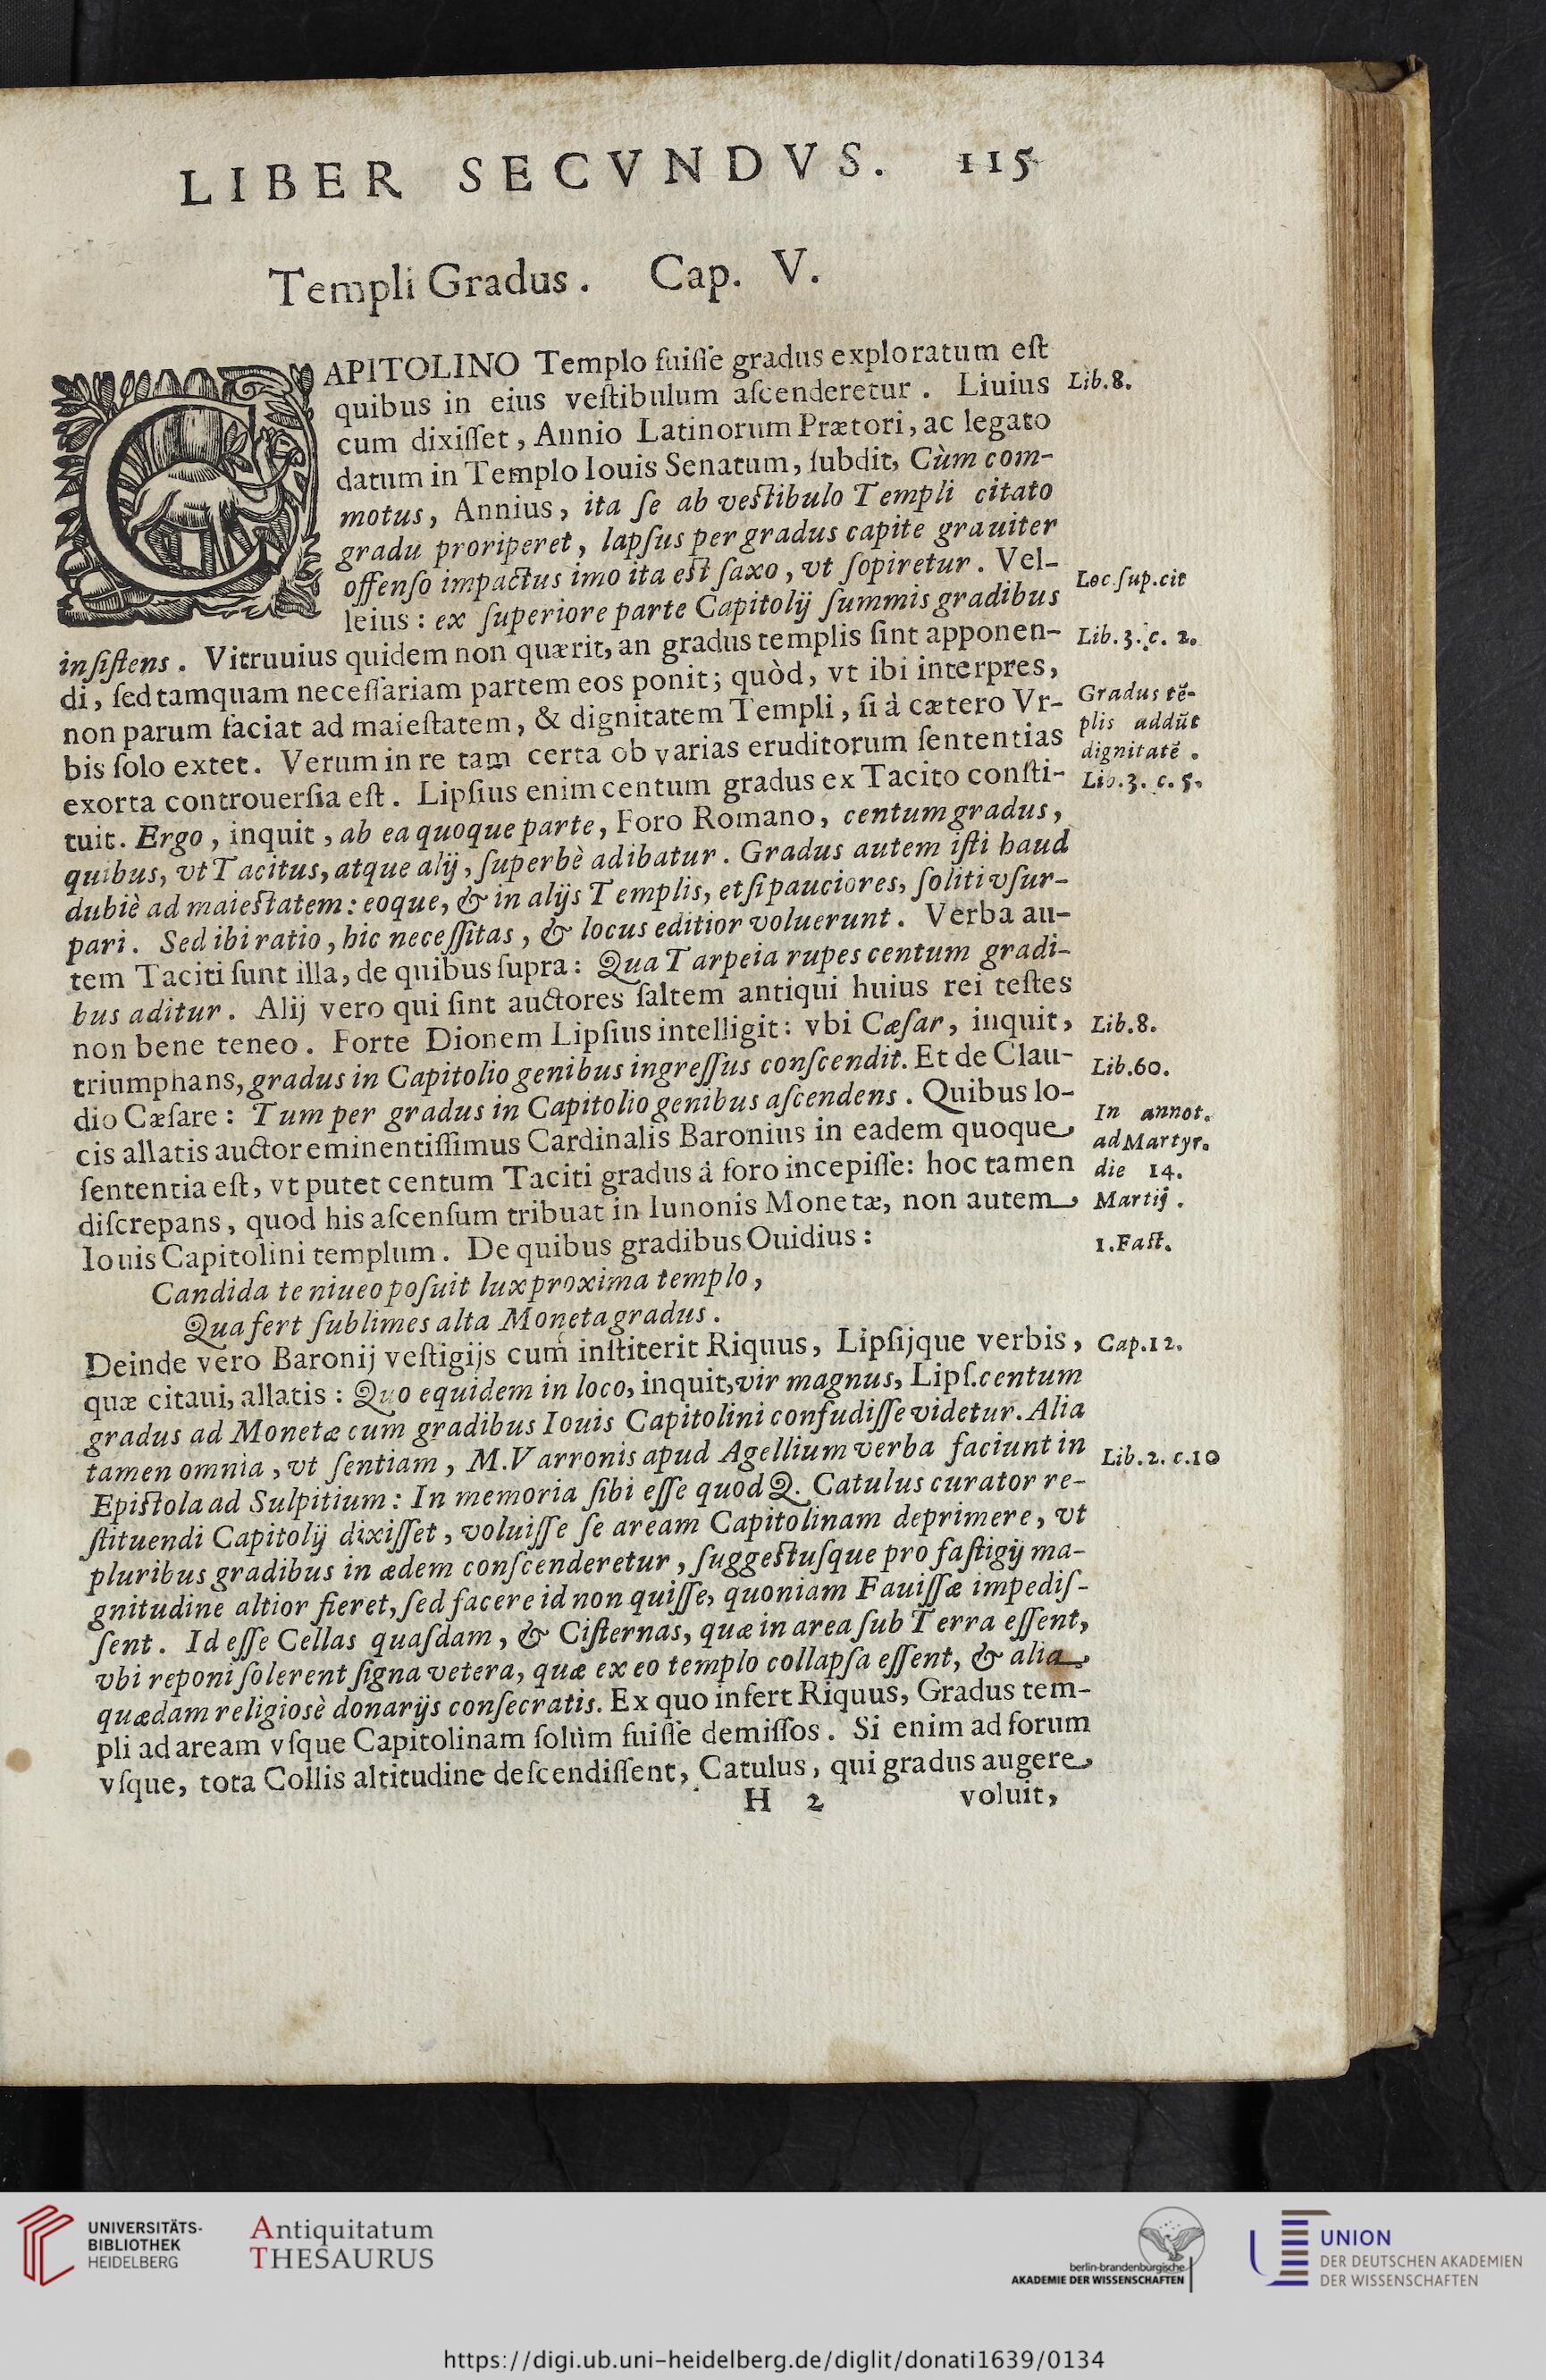 LIBER SECVNDVS. 115
Templi Gradus. Cap. V.
CAPITOLINO Templo fuiſſe gradus exploratum eſt
quibus in eius veſtibulum aſcenderetur. Liuius
Lib.8.
cum dixiſſet, Annio Latinorum Prætori, ac legato
datum in Templo Iouis Senatum, ſubdit, Cùm com-
motus, Annius, ita ſe ab veſtibulo Templi citato
gradu proriperet, lapſus per gradus capite grauiter
offenſo impactus imo ita eſt ſaxo, vt ſopiretur. Vel-
Loc.ſup.cit
leius: ex ſuperiore parte Capitolij ſummis gradibus
inſiſtens. Vitruuius quidem non quærit, an gradus templis ſint apponen-
Lib.3.c. 2.
di, ſed tamquam neceſſariam partem eos ponit; quòd, vt ibi interpres,
non parum faciat ad maieſtatem, & dignitatem Templi, ſi à cætero Vr-
Gradus tẽ-
plis addũt
dignitatẽ.
bis ſolo extet. Verum in re tam certa ob varias eruditorum ſententias
exorta controuerſia eſt. Lipſius enim centum gradus ex Tacito conſti-
Lib.3. c.5.
tuit. Ergo, inquit, ab ea quoque parte, Foro Romano, centum gradus,
quibus, vt Tacitus, atque alij, ſuperbè adibatur. Gradus autem iſti haud
dubiè ad maieſtatem: eoque, & in alijs Templis, etſi pauciores, ſoliti vſur-
pari. Sed ibi ratio, hic neceſſitas, & locus editior voluerunt. Verba au-
tem Taciti ſunt illa, de quibus ſupra: Qua Tarpeia rupes centum gradi-
bus aditur. Alij vero qui ſint auctores ſaltem antiqui huius rei teſtes
non bene teneo. Forte Dionem Lipſius intelligit: vbi Cæſar, inquit,
Lib.8.
triumphans, gradus in Capitolio genibus ingreſſus conſcendit. Et de Clau-
Lib.60.
dio Cæſare: Tum per gradus in Capitolio genibus aſcendens. Quibus lo-
cis allatis auctor eminentiſſimus Cardinalis Baronius in eadem quoque
In annot.
ad Martyr.
die 14.
Martij.
ſententia eſt, vt putet centum Taciti gradus à foro incepiſſe: hoc tamen
diſcrepans, quod his aſcenſum tribuat in Iunonis Monetæ, non autem
Iouis Capitolini templum. De quibus gradibus Ouidius:
1.Faſt.
Candida te niueo poſuit lux proxima templo,
Qua fert ſublimes alta Moneta gradus.
Deinde vero Baronij veſtigijs cum inſtiterit Riquus, Lipſijque verbis,
Cap.12.
quæ citaui, allatis: Quo equidem in loco, inquit, vir magnus, Lipſ. centum
gradus ad Monetæ cum gradibus Iouis Capitolini confudiſſe videtur. Alia
tamen omnia, vt ſentiam, M.Varronis apud Agellium verba faciunt in
Lib.2. c.10
Epiſtola ad Sulpitium: In memoria ſibi eſſe quod Q. Catulus curator re-
ſtituendi Capitolij dixiſſet, voluiſſe ſe aream Capitolinam deprimere, vt
pluribus gradibus in ædem conſcenderetur, ſuggeſtuſque pro faſtigij ma-
gnitudine altior fieret, ſed facere id non quiſſe, quoniam Fauiſſæ impediſ-
ſent. Id eſſe Cellas quaſdam, & Ciſternas, quæ in area ſub Terra eſſent,
vbi reponi ſolerent ſigna vetera, quæ ex eo templo collapſa eſſent, & alia
quædam religiosè donarijs conſecratis. Ex quo infert Riquus, Gradus tem-
pli ad aream vſque Capitolinam ſolùm fuiſſe demiſſos. Si enim ad forum
vſque, tota Collis altitudine deſcendiſſent, Catulus, qui gradus augere
H 2 voluit,
UNIVERSITÄTS-
BIBLIOTHEK
HEIDELBERG
Antiquitatum
THESAURUS
berlin-brandenburgische
AKADEMIE DER WISSENSCHAFTEN
UNION
DER DEUTSCHEN AKADEMIEN
DER WISSENSCHAFTEN
https://digi.ub.uni-heidelberg.de/diglit/donati1639/0134